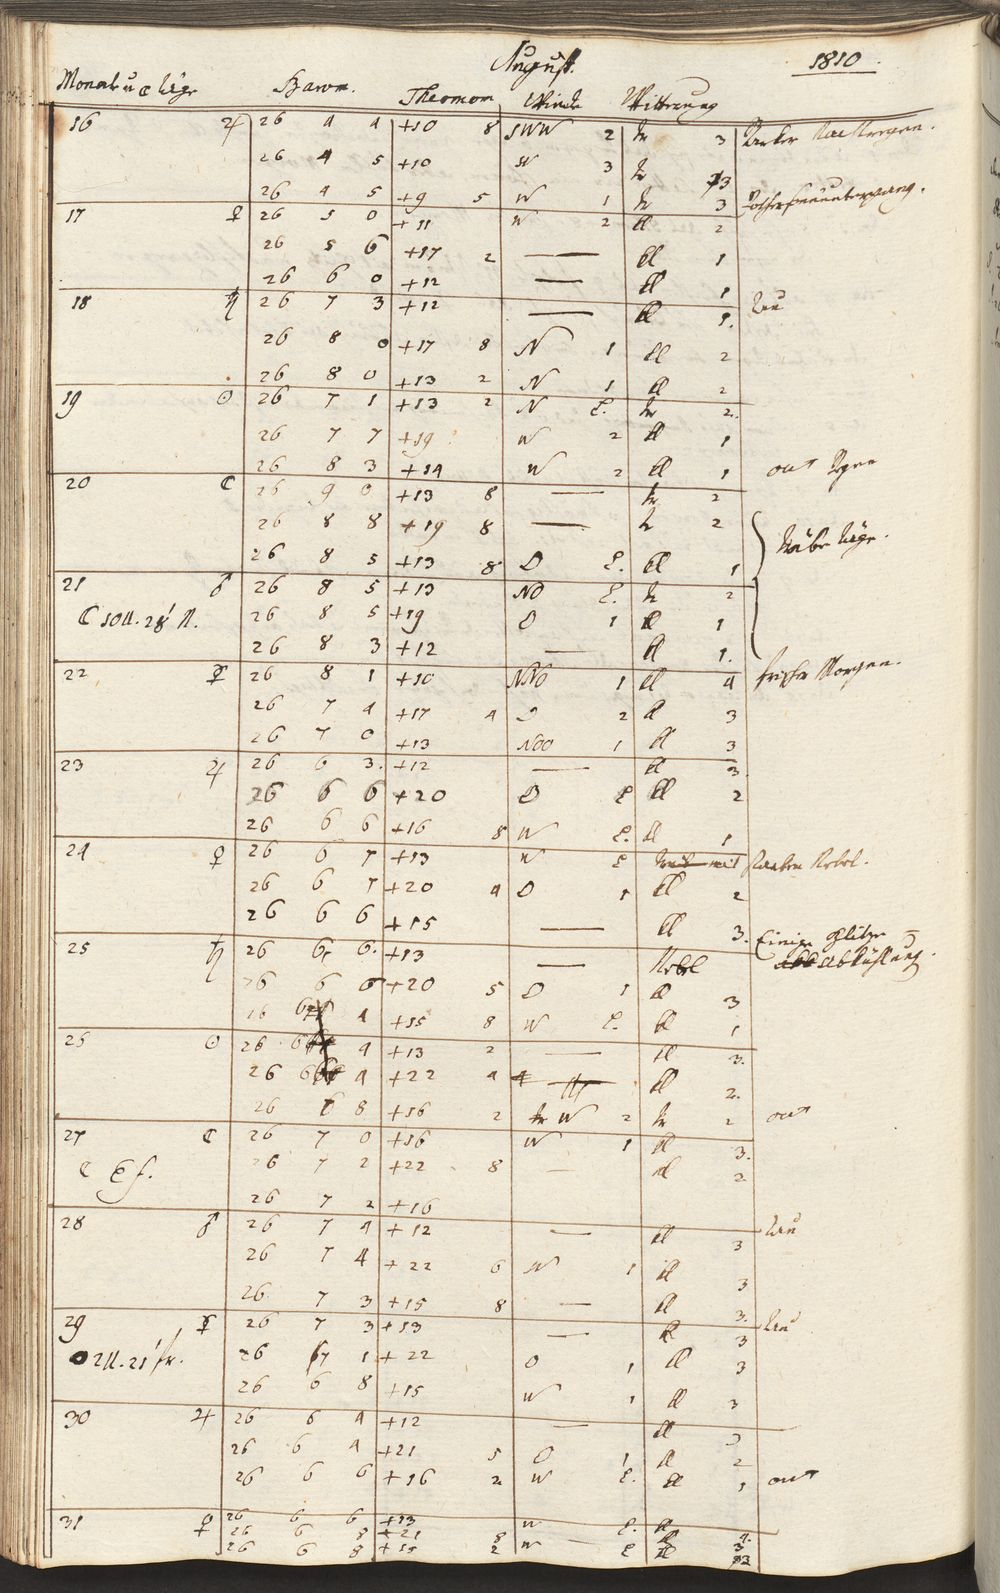 August. 1810.
Monats u. Täge Barom. Thermom. Winde Witterung
16 ♃ 26 4 4 +10 8 SWW 2 tr 3
26 4 5 +10 W 3 tr 3
26 4 5 +9 5 W 1 tr 3
17 ♀ 26 5 0 +11 W 2 kl 2
26 5 6 +17 2 — kl 1
26 6 0 +12 — kl 1
18 ♄ 26 7 3 +12 — kl 1. Tau
26 8 0 +17 8 N 1 kl 2
26 8 0 +13 2 N 1 kl 2
19 ☉ 26 7 1 +13 2 N L. tr 2.
26 7 7 +19 W 2 kl 1
26 8 3 +14 W 2 kl 1
20 ☾ 26 9 0 +13 8 — tr 2
26 8 8 +19 8 — tr 2 Trübe Täge.
26 8 5 +13 8 O L. kl 1
21 ♂ 26 8 5 +13 NO L. tr 2
☾ 10 U. 28' N. 26 8 5 +19 O 1 kl 1
26 8 3 +12 — kl 1.
22 ☿ 26 8 1 +10 NNO 1 kl 4 frischer Morgen.
26 7 4 +17 4 O 2 kl 3
26 7 0 +13 NOO 1 kl 3
23 ♃ 26 6 3. +12 — kl 3.
26 6 6 +20 O L kl 2
26 6 6 +16 8 W L. kl 1
24 ♀ 26 6 7 +13 W L starker Nebel.
26 6 7 +20 4 O 1 kl 2
26 6 6 +15 — kl 3.
25 ♄ 26 6 6. +13 — Nebel Einige Blitze
Abkühlung.
26 6 6 +20 5 O 1 kl 3
26 6 4 +15 8 W L. kl 1
26 ☉ 26 6 4 +13 2 — kl 3.
26 6 4 +22 4 — kl 2.
26 6 8 +16 2 W 2 tr 2
27 ☾ 26 7 0 +16 W 1 kl 3.
☾ Ef. 26 7 2 +22 8 — kl 2
26 7 2 +16
28 ♂ 26 7 4 +12 — kl 3 Tau
26 7 4 +22 6 W 1 kl 3
26 7 3 +15 8 — kl 3.
29 ☿ 26 7 3 +13 — kl 3 Tau
2 U. 21' fr. 26 7 1 +22 O 1 kl 3
26 6 8 +15 W 1 kl 3
30 ♃ 26 6 4 +12 — kl 3
26 6 4 +21 5 O 1 kl 2
26 6 6 +16 2 W L. kl 1
31 ♀ 26 6 6 +13 W L. kl 4.
26 6 8 +21 8 kl 3
26 6 8 +15 2 W L kl 3